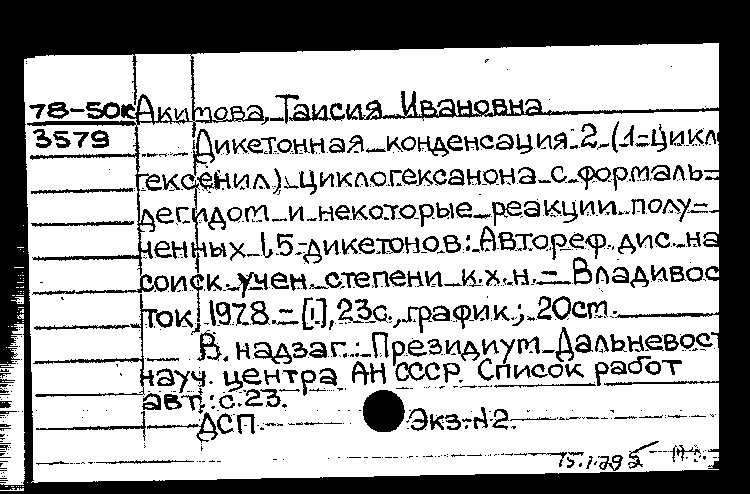 78-50к Акимова, Таисия Ивановна
3579 Дикетонная конденсация 2-(1-цикл
гексенил) циклогексанона с формаль-
дегидом и некоторые реакции полу-
ченных 1,5-дикетонов: Автореф. дис. на
соиск. учен. степени к.х.н. - Владивос
ток, 1978. - [1], 23с., график.; 20ст.
В надзаг.: Президиум Дальневост
науч. центра АН СССР. Список работ
авт.: с.23.
ДСП. Экз. №2.